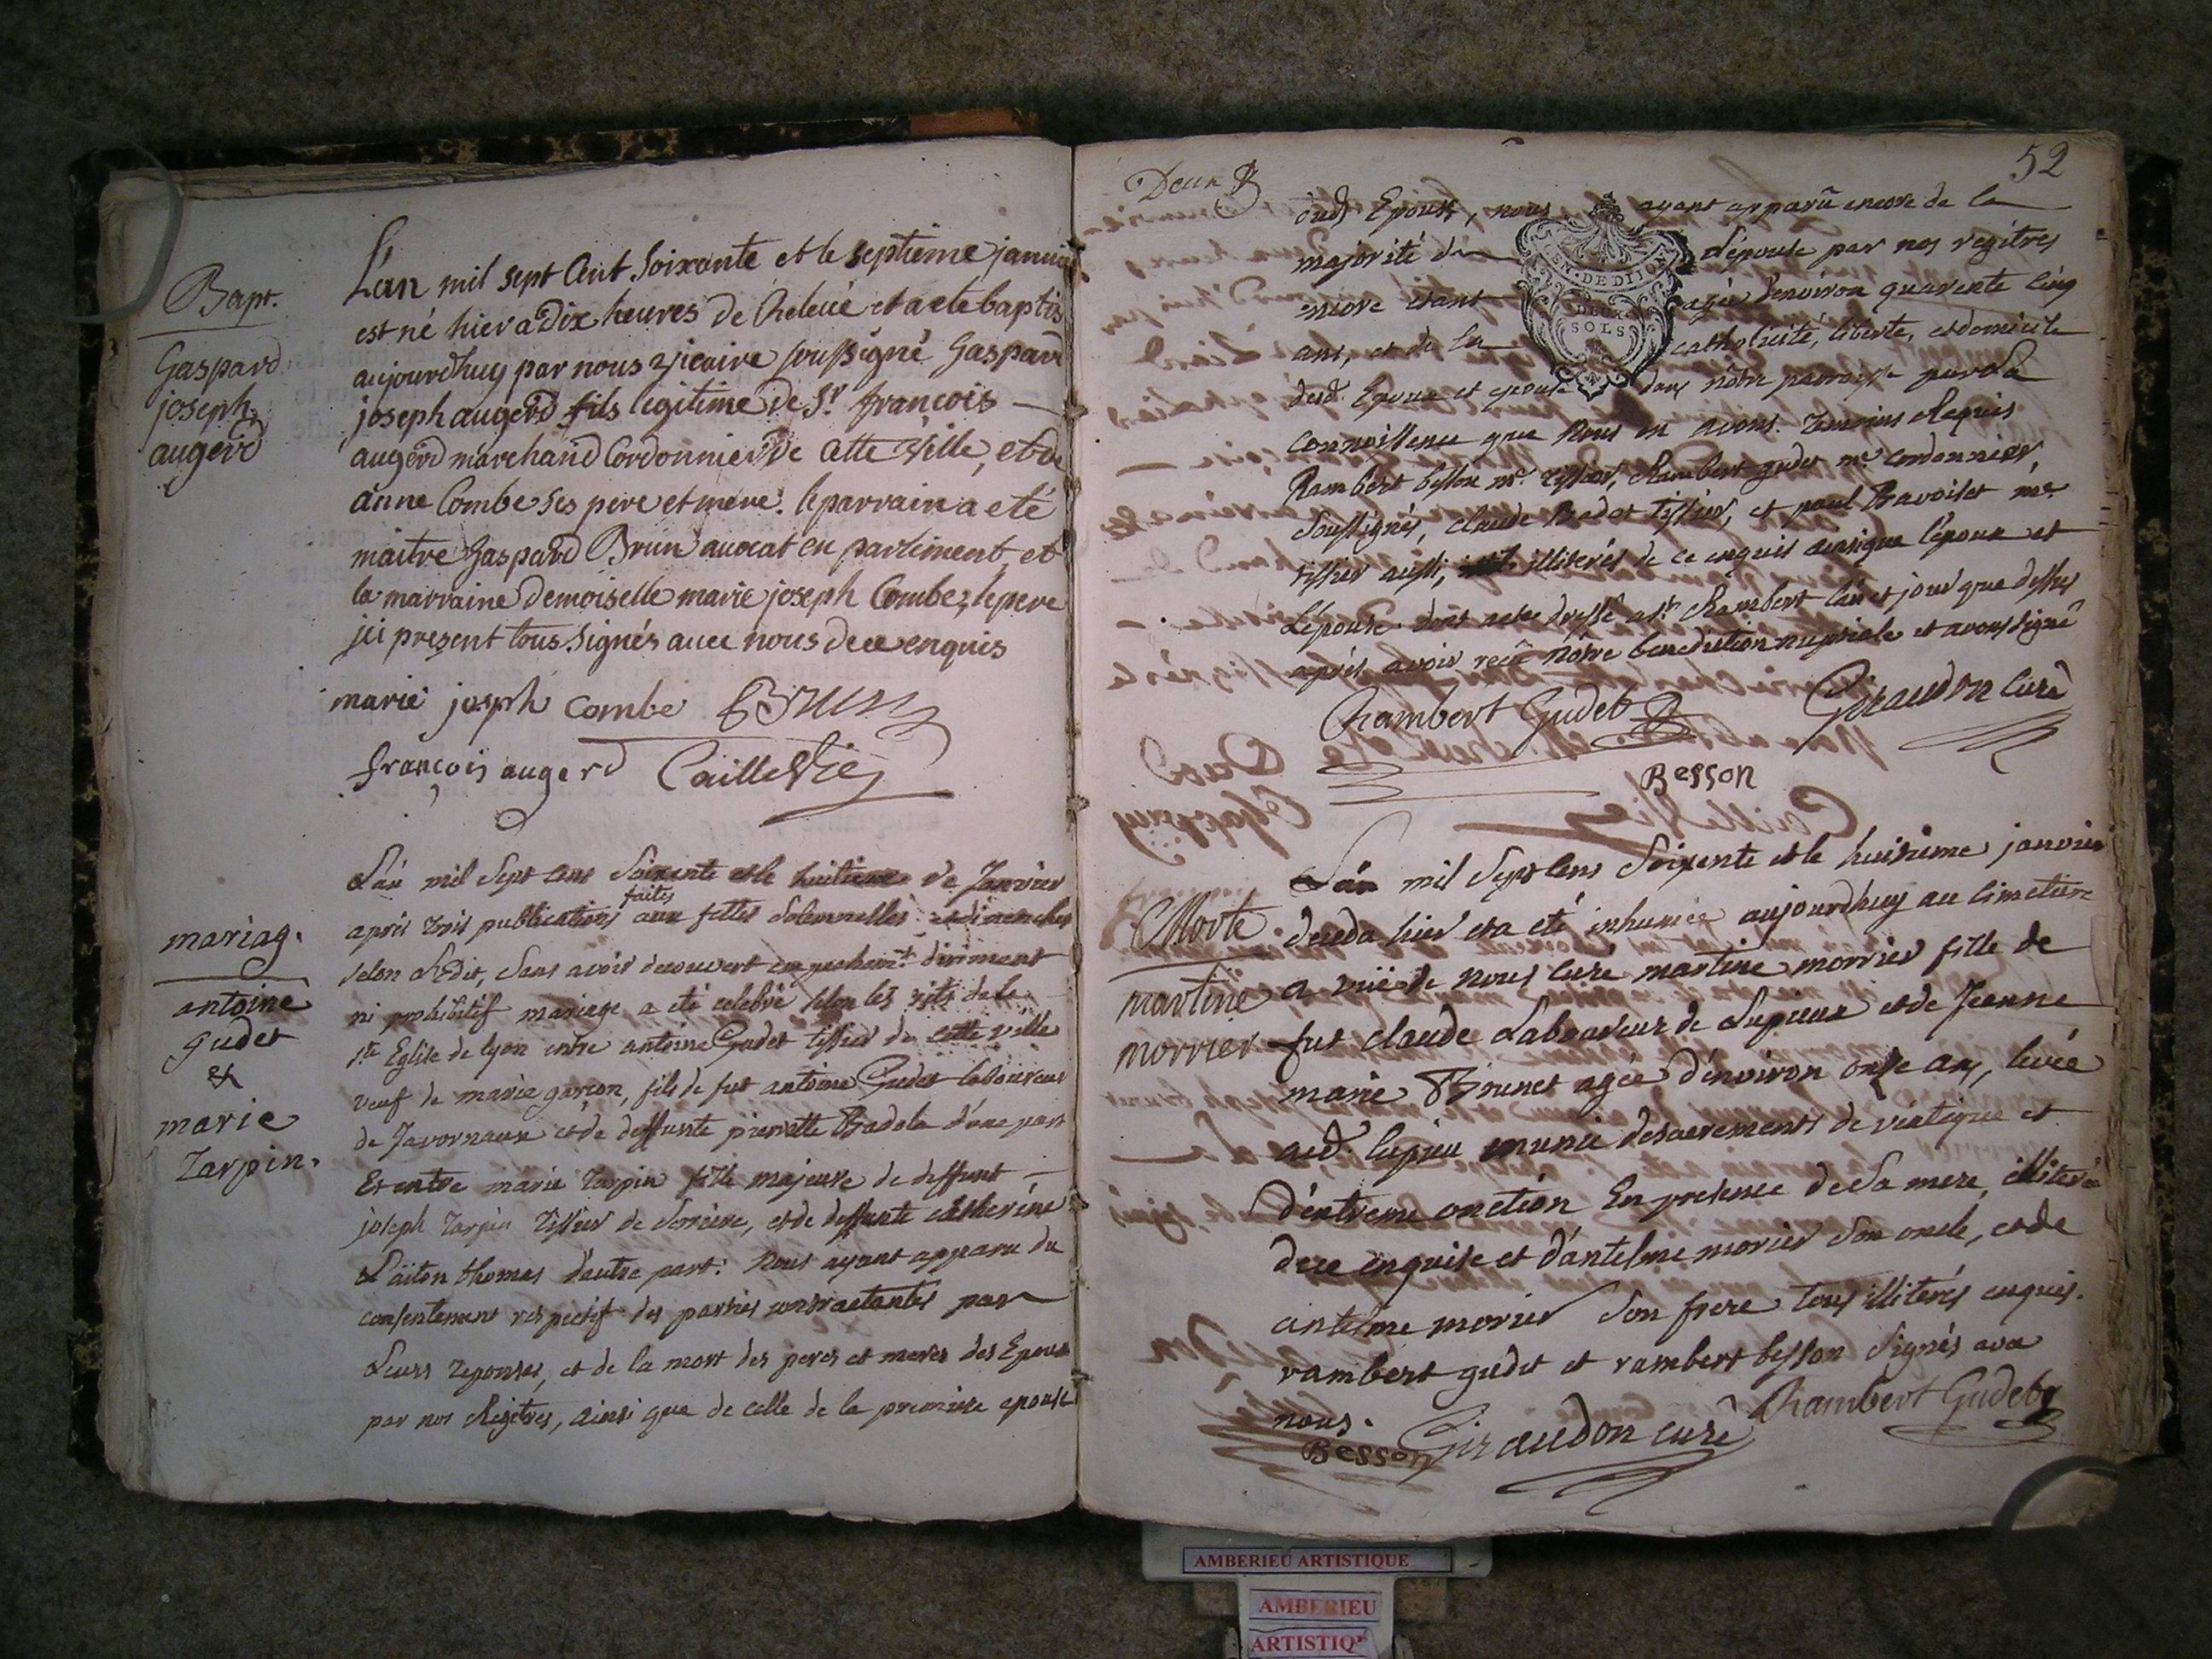 Bapt.
Gaspard
joseph
augerd
L'an mil sept Cent Soixante et le septieme janvier
est né hier a Dix heures de Relevé et a eté baptisé
aujourdhuy par nous vicaire soussigné Gaspard
joseph augerd fils legitime de Sr. françois
augerd marchand Cordonnier De Cette Ville, et de
anne Combe ses pere et mere. le parrain a eté
maitre Gaspard Brun avocat en parliment, et
la marraine Demoiselle marie joseph Combe, le pere
ici present tous signés avec nous de ce enquis
marie joseph combe Brun
françois augerd Caille Vic
mariag.
antoine
gudet
&
marie
Tarpin.
L'an mil Sept Cens Soixante et le huitieme de Janvier
après trois publications faites aux fettes Solemnelles et dimenches
selon l'Edit, Sans avoir decouvert empechemt. diriment
ni prohibitif mariage a eté celebré selon les rits de la
ste. Eglise de lyon entre antoine Gudet tissier de cette ville
veuf de marie garçon, fils de fut antoine Gudet laboureur
de Javornaux et de deffunte pierrette Badola d'une part
Et entre marie Tarpin fille majeure de deffunt
joseph Tarpin Tissier de Serriere, et de deffunte catherine
thomas d'autre part: Nous ayant apparu du
consentement respectif des parties contractantes par
Leurs reponses, et de la mort des peres et meres des Epoux
par nos Regitres, ainsi que de celle de la premiere epouse
52
Deux
dud. Epoux, nous ayant apparû encore de la
majorité de l'épouse par nos regitres
encore étant agée d'environ quarente cinq
ans, et de la catholicité, liberté, et domicile
desd. Epoux et epouse dans nôtre parroisse par La
connoissence que Nous en avons. Temoins Requis
Rambert besson me. tissier, Rambert gudet me. cordonnier,
Soussignés, claude Badet tissier, et paul Ravoilet me.
tissier aussi, illiterés de ce enquis ainsi que l'époux et
L'épouse. dont acte dressé a St. Rambert l'an et jour que dessus
après avoir reçû nôtre benediction nuptiale et avons signé
Rambert Gudet Giraudon curé
Besson
GEN. DE DIJON
DEUX
SOLS
Morte
martine
morrier
L'an mil Sept Cens Soixente et le huitieme janvier
deceda hier et a eté inhumée aujourdhuy au cimetiere
a vüe de nous curé martine morrier fille de
fut claude Laboureur de Lupieu et de Jeanne
marie Brunet agée d'environ onze ans, levée
aud. lupieu munie des sacrements de viatique et
d'extreme onction En presence de Sa mere, illiterée
de ce enquise et d'antelme morier son oncle, et de
antelme morier Son frere tous illiterés enquis.
rambert gudet et rambert besson signés avec
nous.
Besson Giraudon curé Rambert Gudet
AMBERIEU ARTISTIQUE
AMBERIEU
ARTISTIQ